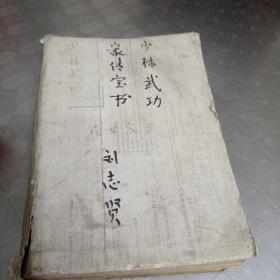 少林武功
家传宝书
刘志贤